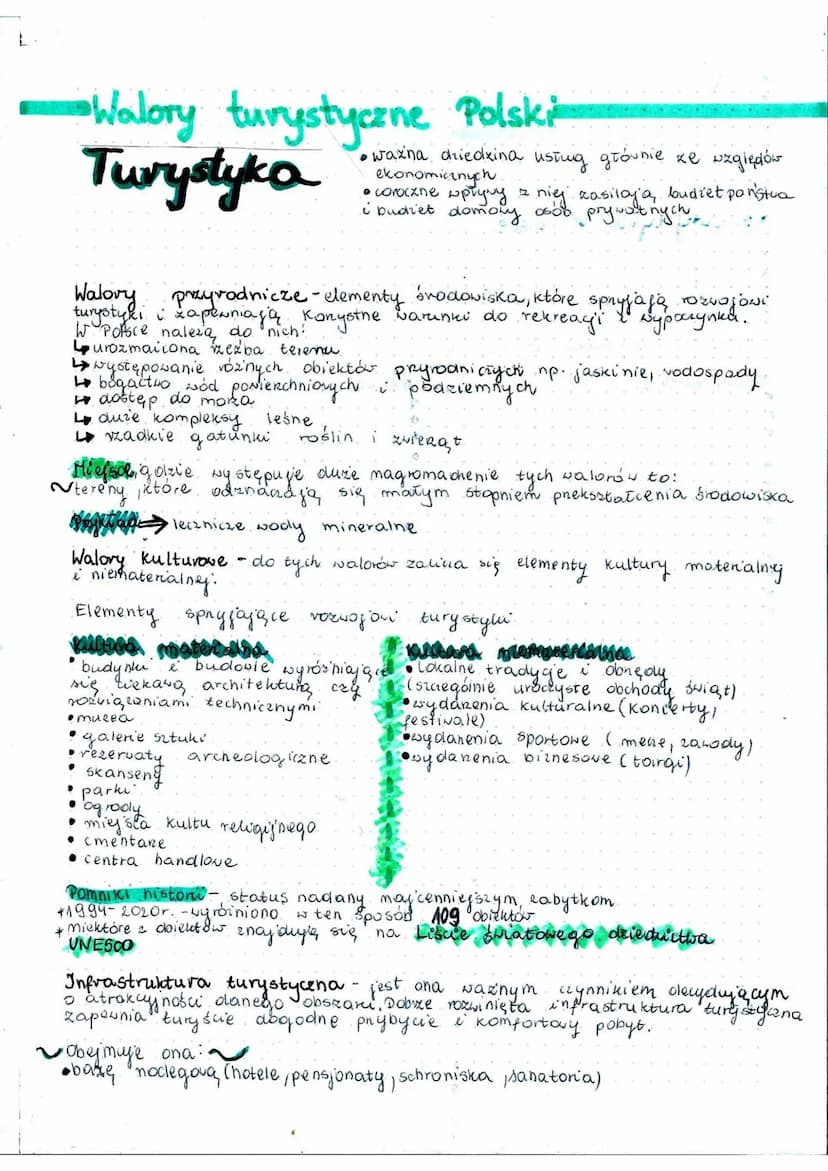 Walory turystyczne Polski
Turystyka
• ważna dziedzina usług głównie ze względów
ekonomicznych
• coroczne wpływy z niej zasilają budżet państwa
i budżet domowy osób prywatnych
Walory przyrodnicze - elementy środowiska, które sprzyjają rozwojowi
turystyki i zapewniają korzystne warunki do rekreacji i wypoczynku.
W Polsce należą do nich:
↳ urozmaicona rzeźba terenu
↳ występowanie różnych obiektów przyrodniczych np. jaskinie, wodospady
↳ bogactwo wód powierzchniowych i podziemnych
↳ dostęp do morza
↳ duże kompleksy leśne
↳ rzadkie gatunki roślin i zwierząt
Miejsce, gdzie występuje duże nagromadzenie tych walorów to:
~ tereny, które odznaczają się małym stopniem przekształcenia środowiska
Przykład → lecznicze wody mineralne
Walory kulturowe - do tych walorów zalicza się elementy kultury materialnej
i niematerialnej.
Elementy sprzyjające rozwojowi turystyki
Kultura materialna
• budynki i budowle wyróżniające
się ciekawą architekturą czy
rozwiązaniami technicznymi
• muzea
• galerie sztuki
• rezerwaty archeologiczne
• skanseny
• parki
• ogrody
• miejsca kultu religijnego
• cmentarze
• centra handlowe
Kultura niematerialna
• lokalne tradycje i obrzędy
(szczególnie uroczyste obchody świąt)
• wydarzenia kulturalne (koncerty,
festiwale)
• wydarzenia sportowe (mecze, zawody)
• wydarzenia biznesowe (targi)
Pomniki historii - status nadany najcenniejszym zabytkom
+ 1994-2020r. - wyróżniono w ten sposób 109 obiektów
+ niektóre z obiektów znajdują się na Liście światowego dziedzictwa
UNESCO
Infrastruktura turystyczna - jest ona ważnym czynnikiem decydującym
o atrakcyjności danego obszaru. Dobrze rozwinięta infrastruktura turystyczna
zapewnia turyście dogodne przybycie i komfortowy pobyt.
~ Obejmuje ona: ~
• bazę noclegową (hotele, pensjonaty, schroniska, sanatoria)